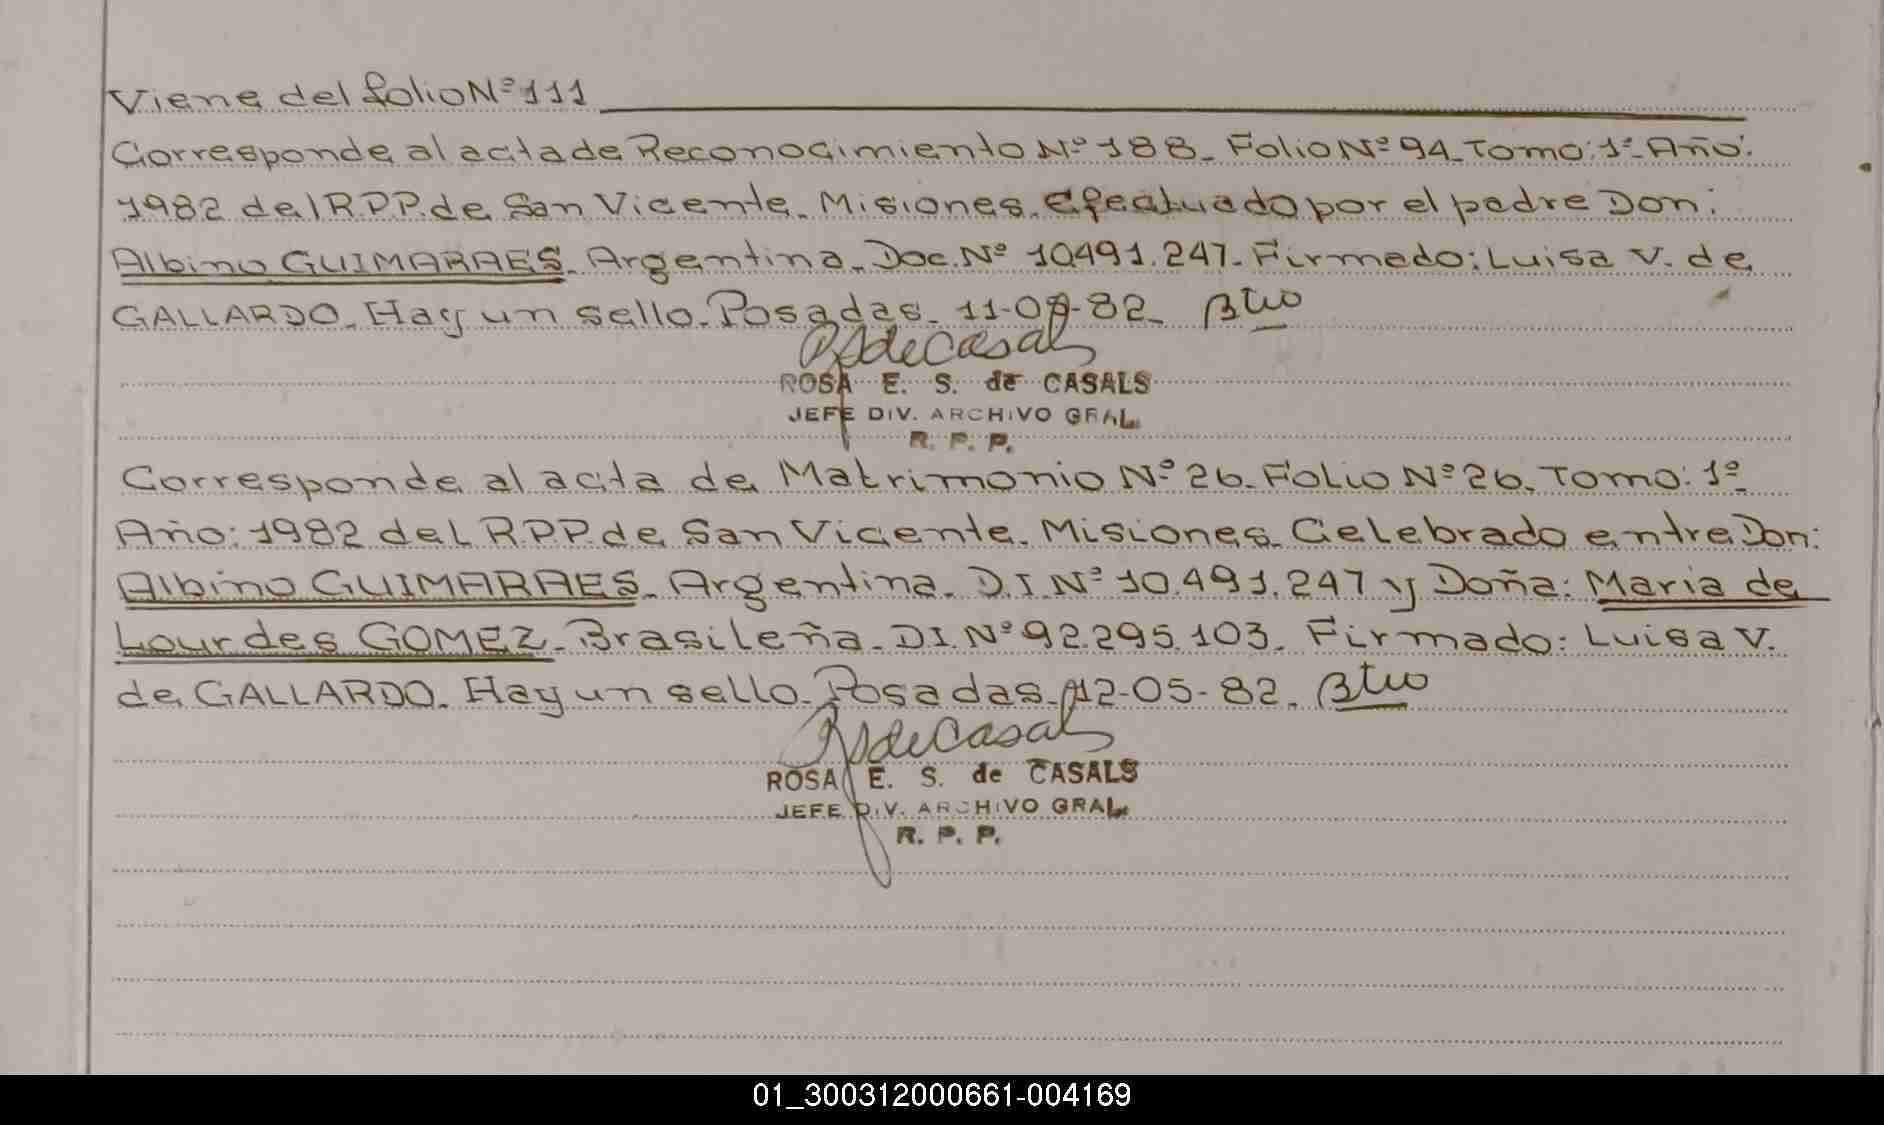 Viene del folio Nº 111
Corresponde al acta de Reconocimiento Nº 188. Folio Nº 94. Tomo: 1º. Año:
1982 del R.P.P. de San Vicente. Misiones. Efectuado por el padre Don:
Albino GUIMARAES. Argentina. Doc. Nº 10.491.247. Firmedo: Luisa V. de
GALLARDO. Hay un sello. Posadas. 11-05-82.
ROSA E. S. de CASALS
JEFE DIV. ARCHIVO GRAL.
R. P. P.
Corresponde al acta de Matrimonio Nº 26. Folio Nº 26. Tomo: 1º
Año: 1982 del R.P.P. de San Vicente. Misiones. Celebrado entre Don:
Albino GUIMARAES. Argentina. D.I. Nº 10.491.247 y Doña: Maria de
Lourdes GOMEZ. Brasileña. D.I. Nº 92.295.103. Firmado: Luisa V.
de GALLARDO. Hay un sello. Posadas. 12-05-82.
ROSA E. S. de CASALS
JEFE DIV. ARCHIVO GRAL.
R. P. P.
01_300312000661-004169